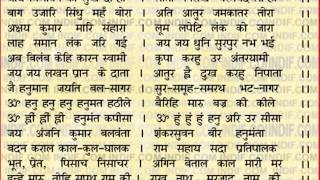 बाग उजारि सिंधु महँ बोरा । अति आतुर जमकातर तोरा ॥
अक्षय कुमार मारि संहारा । लूम लपेटि लंक को जारा ॥
लाह समान लंक जरि गई । जय जय धुनि सुरपुर नभ भई ॥
अब बिलंब केहि कारन स्वामी । कृपा करहु उर अंतरयामी ॥
जय जय लखन प्रान के दाता । आतुर ह्वै दुख करहु निपाता ॥
जै हनुमान जयति बल-सागर । सुर-समूह-समरथ भट-नागर ॥
ॐ हनु हनु हनु हनुमंत हठीले । बैरिहि मारु बज्र की कीले ॥
ॐ ह्नीं ह्नीं ह्नीं हनुमंत कपीसा । ॐ हुं हुं हुं हनु अरि उर सीसा ॥
जय अंजनि कुमार बलवंता । शंकरसुवन बीर हनुमंता ॥
बदन कराल काल-कुल-घालक । राम सहाय सदा प्रतिपालक ॥
भूत, प्रेत, पिसाच निसाचर । अगिन बेताल काल मारी मर ॥
इन्हें मारु, तोहि सपथ राम की । राखु नाथ मरजाद नाम की ॥